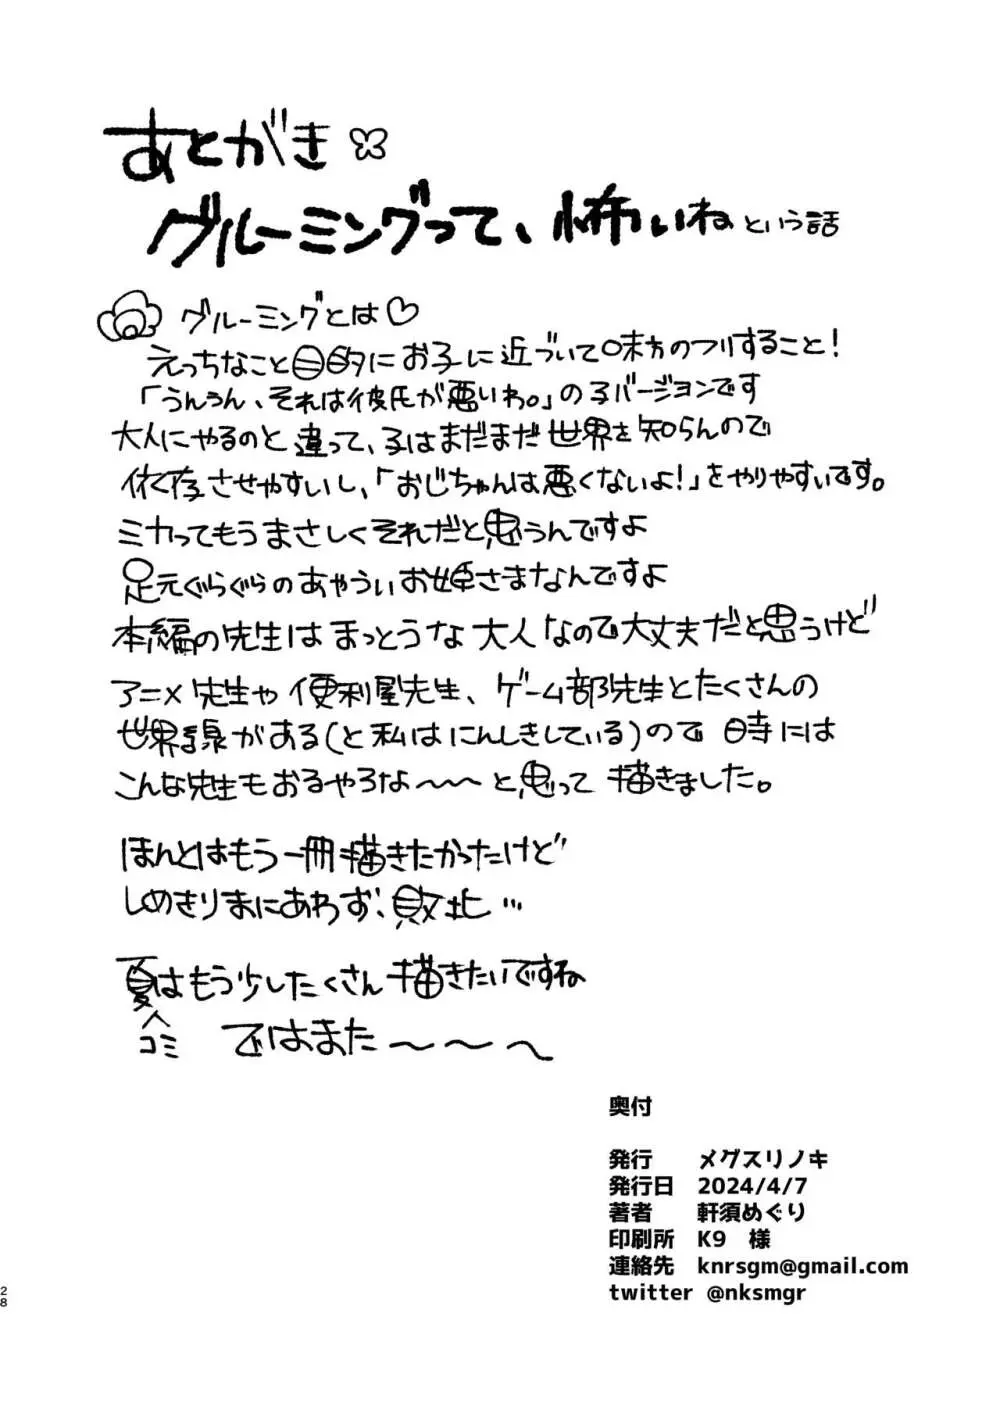 あとがき
グルーミングって、怖いね という話
グルーミングとは♡
えっちなこと目的にお子に近づいて味方のフリすること!
「うんうん、それは彼氏が悪いわ。」の子バージョンです
大人にやるのと違って、子はまだまだ世界を知らんので
依存させやすいし、「おじちゃんは悪くないよ!」をやりやすいです。
ミカってもうまさしくそれだと思うんですよ
足元ぐらぐらのあやういお姫さまなんですよ
本編の先生はまっとうな大人なので大丈夫だと思うけど
アニメ先生や便利屋先生、ゲーム部先生とたくさんの
世界線がある(と私はにんしきしている)ので時には
こんな先生もおるやろな〜〜と思って描きました。
ほんとはもう一冊描きたかったけど
しめきりまにあわず、敗北…
夏はもう少したくさん描きたいですね
コミ
ではまた〜〜〜
奥付
発行 メグスリノキ
発行日 2024/4/7
著者 軒須めぐり
印刷所 K9 様
連絡先 knrsgm@gmail.com
twitter @nksmgr
28